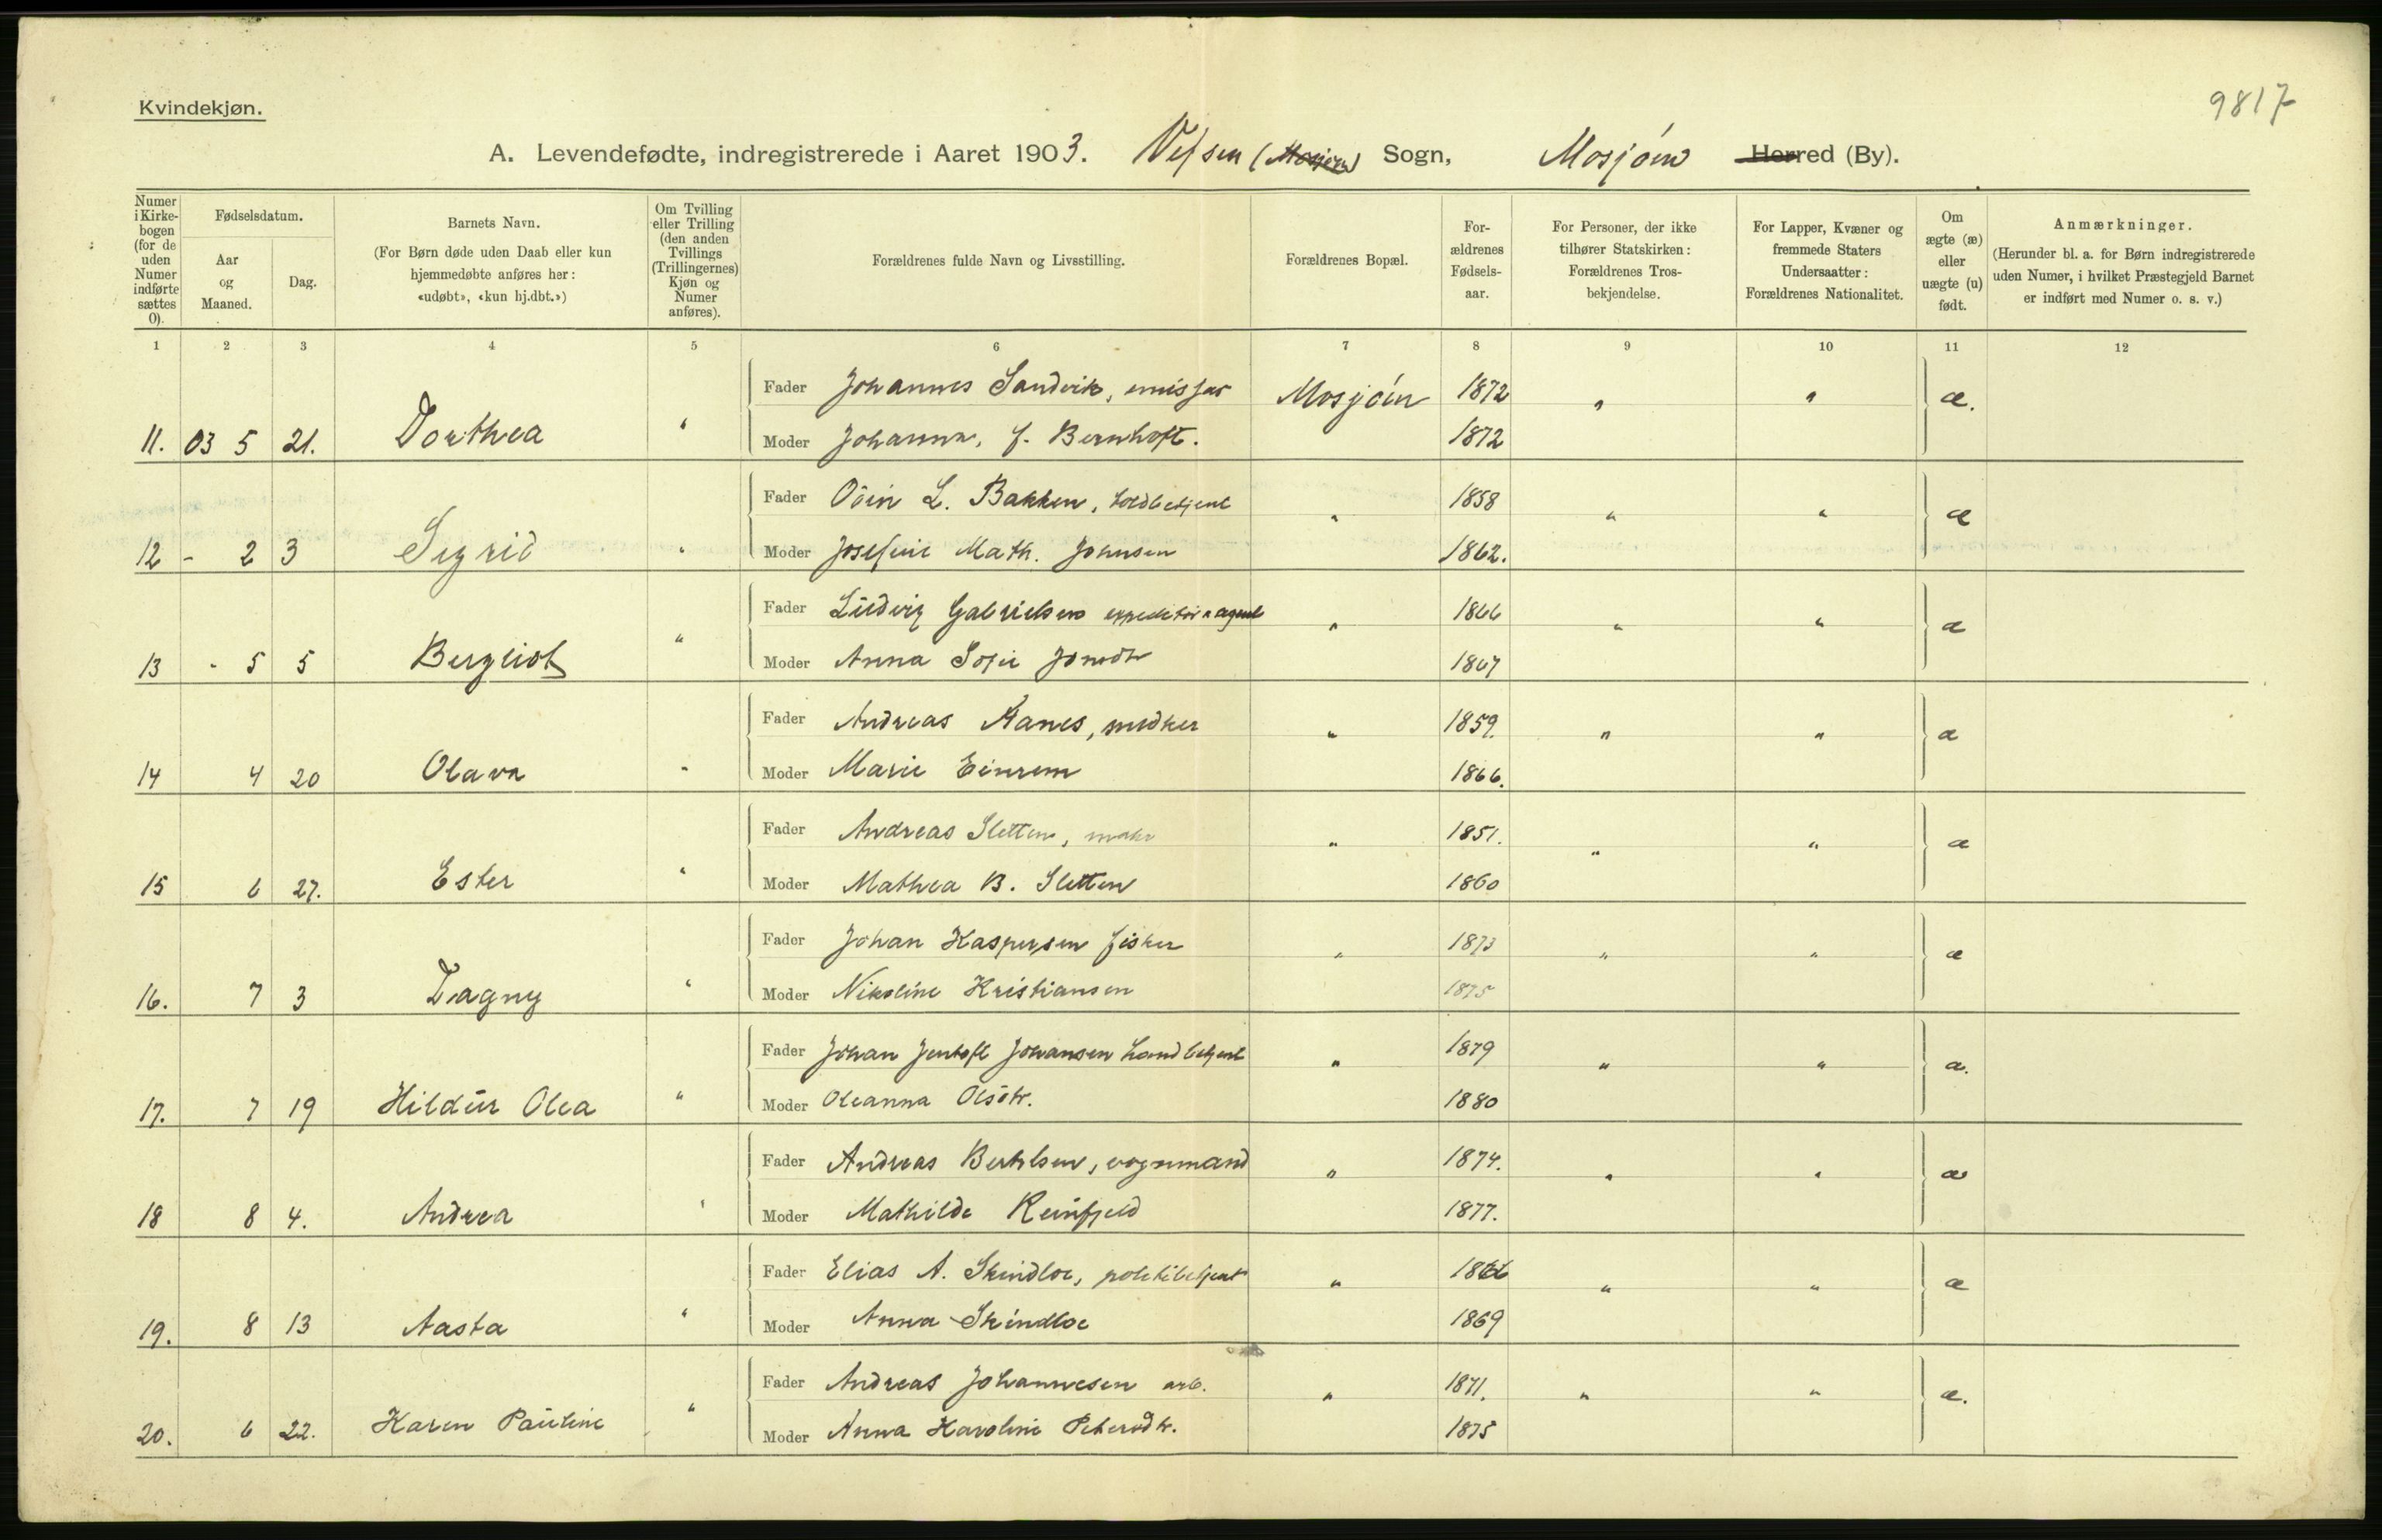 Kvindekjøn.
9817
A. Levendefødte, indregistrerede i Aaret 1903. Vefsen (Mosjøen) Sogn, Mosjøen Herred (By).
Numer i Kirkebogen (for de uden Numer indførte sættes 0).
Fødselsdatum.
Aar og Maaned.
Dag.
Barnets Navn.
(For Børn døde uden Daab eller kun hjemmedøbte anføres her: «udøbt», «kun hj.dbt.»)
Om Tvilling eller Trilling (den anden Tvillings (Trillingernes) Kjøn og Numer anføres).
Forældrenes fulde Navn og Livsstilling.
Forældrenes Bopæl.
Forældrenes Fødselsaar.
For Personer, der ikke tilhører Statskirken: Forældrenes Trosbekjendelse.
For Lapper, Kvæner og fremmede Staters Undersaatter: Forældrenes Nationalitet.
Om ægte (æ) eller uægte (u) født.
Anmærkninger.
(Herunder bl. a. for Børn indregistrerede uden Numer, i hvilket Præstegjeld Barnet er indført med Numer o. s. v.)
1 2 3 4 5 6 7 8 9 10 11 12
Fader Johannes Sandvik, emissær Mosjøen 1872 " " æ.
11. 03 5 21. Dorthea " Moder Johanna, f. Bernhoft. 1872
Fader Oëin L. Bakken, toldbetjent " 1858 " " æ
12 - 2 3 Sigrid " Moder Josefine Math. Johnsen 1862.
Fader Ludvig Gabrielsen expeditør & agent " 1866 " " æ
13 - 5 5 Bergliot " Moder Anna Sofie Jonsdtr 1867
Fader Andreas Aanes, snedker " 1859. " " æ
14 4 20 Olava " Moder Marie Einrem 1866.
Fader Andreas Sletten, maler " 1851. " " æ
15 6 27. Ester " Moder Mathea B. Sletten 1860
Fader Johan Kaspersen fisker " 1873 " " æ
16. 7 3 Dagny " Moder Nikoline Kristiansen 1875
Fader Johan Jentoft Johansen handbetjent " 1879 " " æ.
17. 7 19 Hildur Olea " Moder Oleanna Olsdtr. 1880
Fader Andreas Bertelsen, vognmand " 1874. " " æ
18 8 4. Andrea " Moder Mathilde Reinfjeld 1877.
Fader Elias A. Skindloe, politibetjent " 1866 " " æ
19. 8 13 Aasta " Moder Anna Skindloe 1869
Fader Andreas Johannesen arb. " 1871. " " æ.
20. 6 22. Karen Pauline " Moder Anna Karoline Petersdtr. 1875